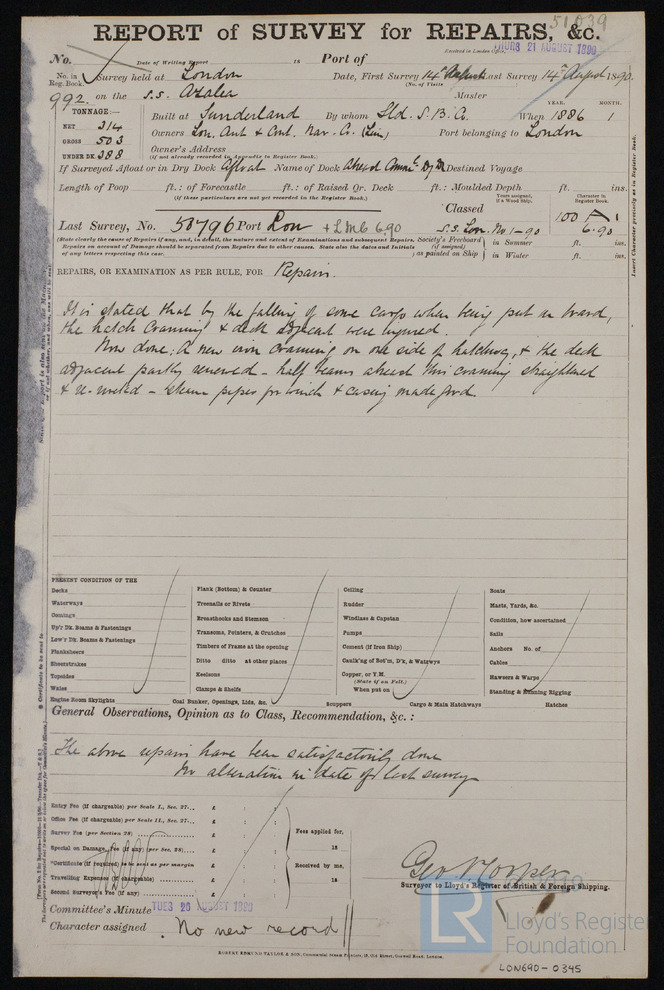 51039
REPORT of SURVEY for REPAIRS, &c.
Received in London Office,
THURS 21 AUGUST 1890
No. Date of Writing Report 18 Port of
No. in Reg. Book. Survey held at London Date, First Survey 14th August Last Survey 14th August 1890
(No. of Visits
992 on the s.s. Azalea Master
TONNAGE:—
YEAR. MONTH.
Built at Sunderland By whom Sld. S. B. Co. When 1886 1
NET 314
GROSS 503
UNDER DK. 388
Owners Lon. Aut & Cont. Nav. Co. (Lim) Port belonging to London
Owner's Address
(if not already recorded in Appendix to Register Book.)
If Surveyed Afloat or in Dry Dock Afloat Name of Dock Destined Voyage
Length of Poop ft.: of Forecastle ft.: of Raised Qr. Deck ft.: Moulded Depth ft. ins.
(if these particulars are not yet recorded in the Register Book.)
Years assigned, if a Wood Ship.
Character in Register Book.
Classed
100 A 1
6.90
Last Survey, No. 50796 Port Lon + LMC 6.90 S.S. Lon. No 1-90
(State clearly the cause of Repairs if any, and, in detail, the nature and extent of Examinations and subsequent Repairs.
Repairs on account of Damage should be separated from Repairs due to other causes. State also the dates and Initials
of any letters respecting this case.
Society's Freeboard (if assigned) as painted on Ship in Summer ft. ins.
in Winter ft. ins.
Insert Character precisely as in Register Book.
REPAIRS, OR EXAMINATION AS PER RULE, FOR Repairs.
It is stated that by the falling of some cargo when being put on board,
the hatch Coamings & deck adjacent were injured.
Now done: A new iron coaming on one side of hatchway, & the deck
adjacent partly renewed - half beams abreast this coaming straightened
& re-riveted - steam pipes for winch & casing made good.
PRESENT CONDITION OF THE
Decks
Waterways
Comings
Up'r Dk. Beams & Fastenings
Low'r Dk. Beams & Fastenings
Planksheers
Sheerstrakes
Topsides
Wales
Engine Room Skylights
Plank (Bottom) & Counter
Treenails or Rivets
Breasthooks and Stemson
Transoms, Pointers, & Crutches
Timbers of Frame at the opening
Ditto ditto at other places
Keelsons
Clamps & Shelfs
Coal Bunker, Openings, Lids, &c.
Ceiling
Rudder
Windlass & Capstan
Pumps
Cement (if Iron Ship)
Caulk'ng of Bot'm, D'k, & Watrwys
Copper, or Y.M.
(State if on Felt.)
When put on
Scuppers
Cargo & Main Hatchways
Boats
Masts, Yards, &c.
Condition, how ascertained
Sails
Anchors No. of
Cables
Hawsers & Warps
Standing & Running Rigging
Hatches
General Observations, Opinion as to Class, Recommendation, &c.:
The above repairs have been satisfactorily done
No alteration in date of last survey
Entry Fee (if chargeable) per Scale I., Sec. 27... £ : :
Office Fee (if chargeable) per Scale II., Sec. 27... £ : :
Survey Fee (per Section 28) £ : :
Special on Damage, Fee (if any) (per Sec. 28) £ : :
*Certificate (if required) to be sent as per margin
Travelling Expenses (if chargeable) £ : :
Second Surveyor's Fee (if any) £ : :
Fees applied for,
18
Received by me,
18
Surveyor to Lloyd's Register of British & Foreign Shipping.
Committee's Minute TUES 26 AUGUST 1890
Character assigned No new record
LR
Lloyd's Register
Foundation
ROBERT EDMUND TAYLOR & SON, Commercial Steam Printers, 19, Old Street, Goswell Road, London.
LON690-0345